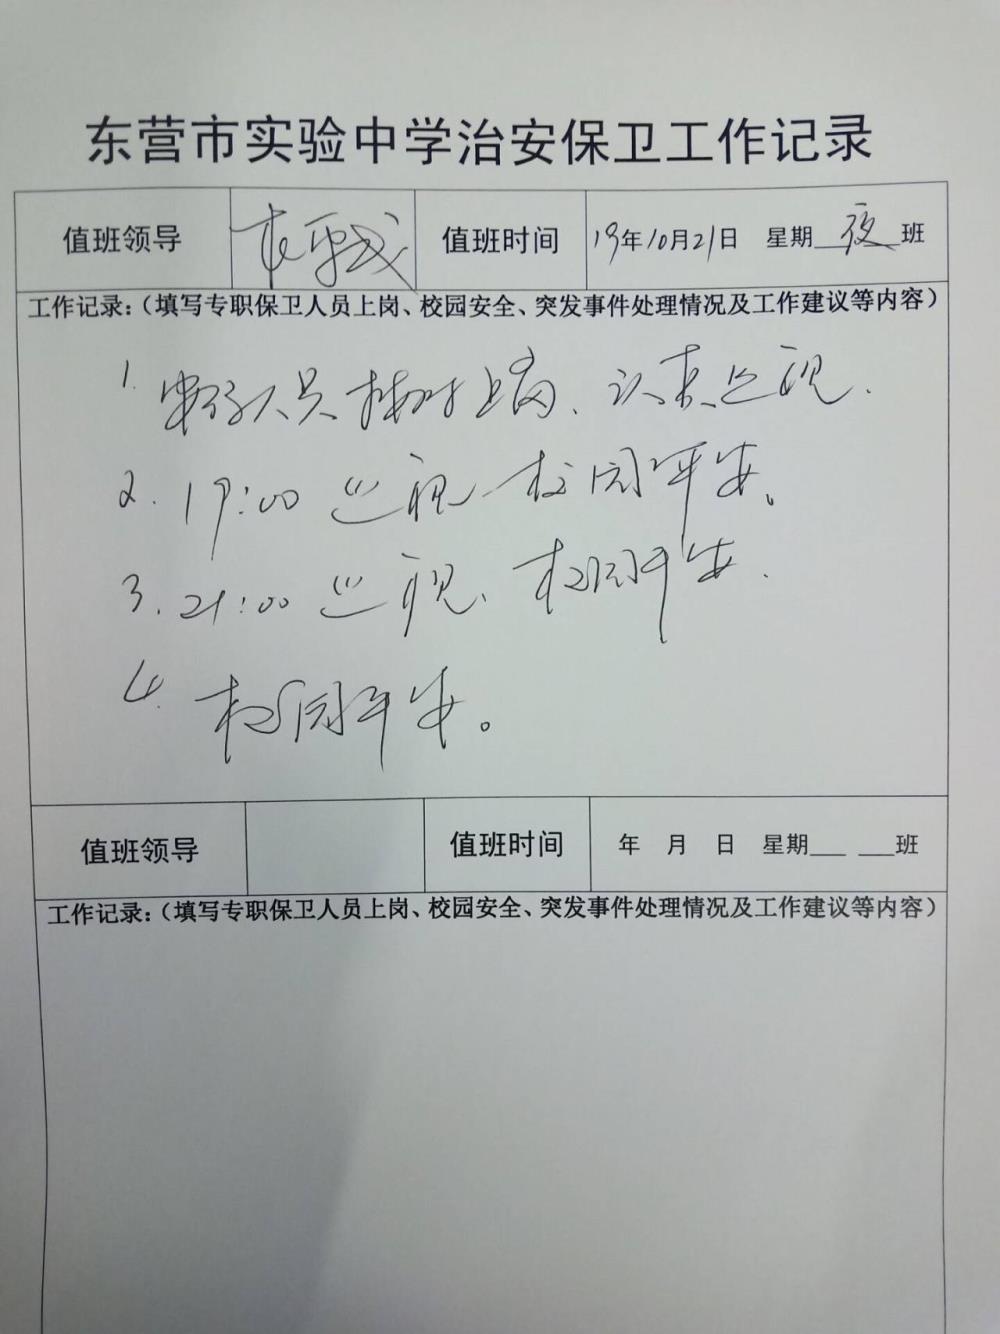 东营市实验中学治安保卫工作记录
值班领导 值班时间 19年10月21日 星期 夜 班
工作记录：（填写专职保卫人员上岗、校园安全、突发事件处理情况及工作建议等内容）
1. 人员按时上岗、认真巡视.
2. 19:00 巡视 校园平安、
3. 21:00 巡视、校园平安.
4. 校园平安。
值班领导 值班时间 年 月 日 星期___ ___班
工作记录：（填写专职保卫人员上岗、校园安全、突发事件处理情况及工作建议等内容）